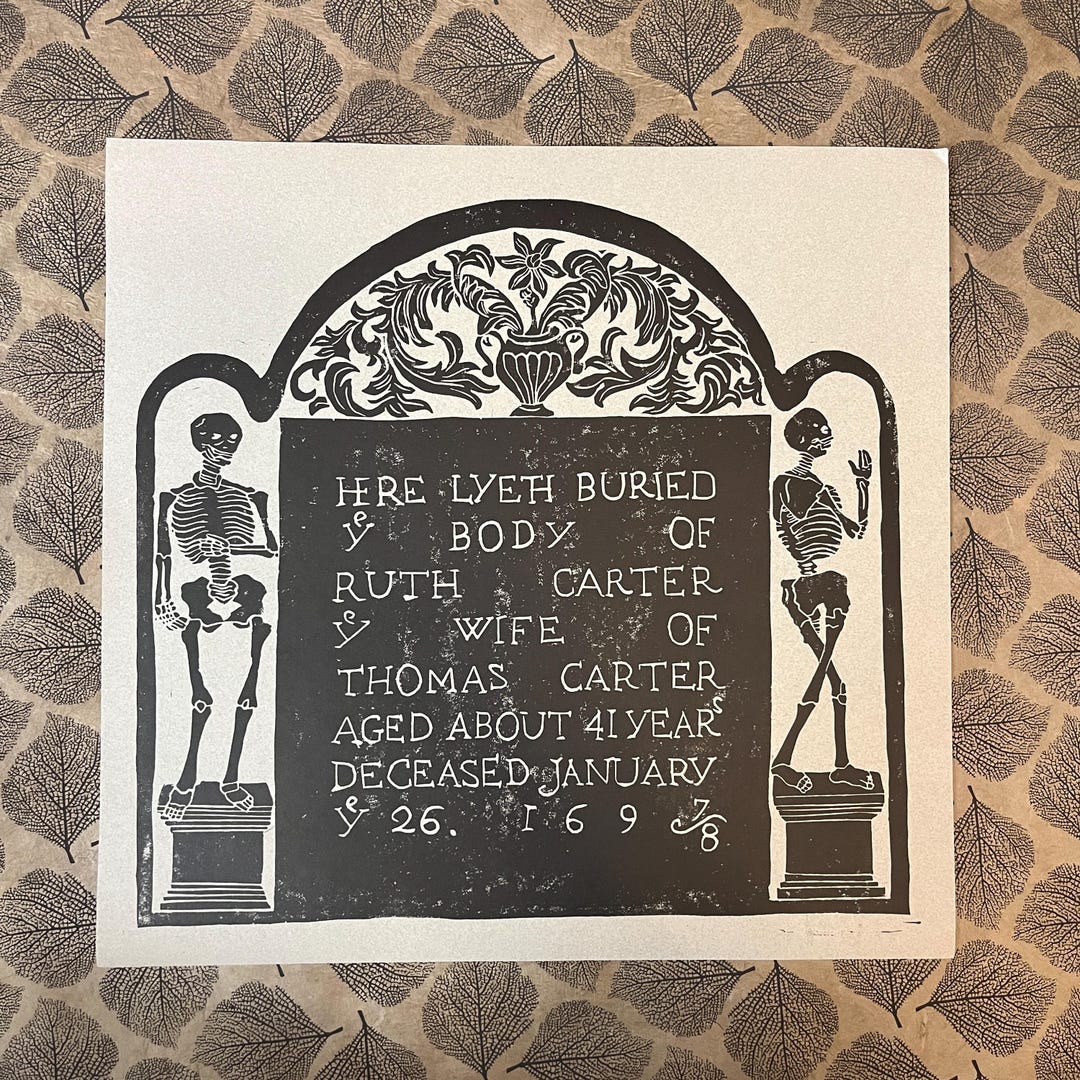 HERE LYETH BURIED
yᵉ BODY OF
RUTH CARTER
yᵉ WIFE OF
THOMAS CARTER
AGED ABOUT 41 YEARˢ
DECEASED JANUARY
yᵉ 26. 1 6 9 7/8